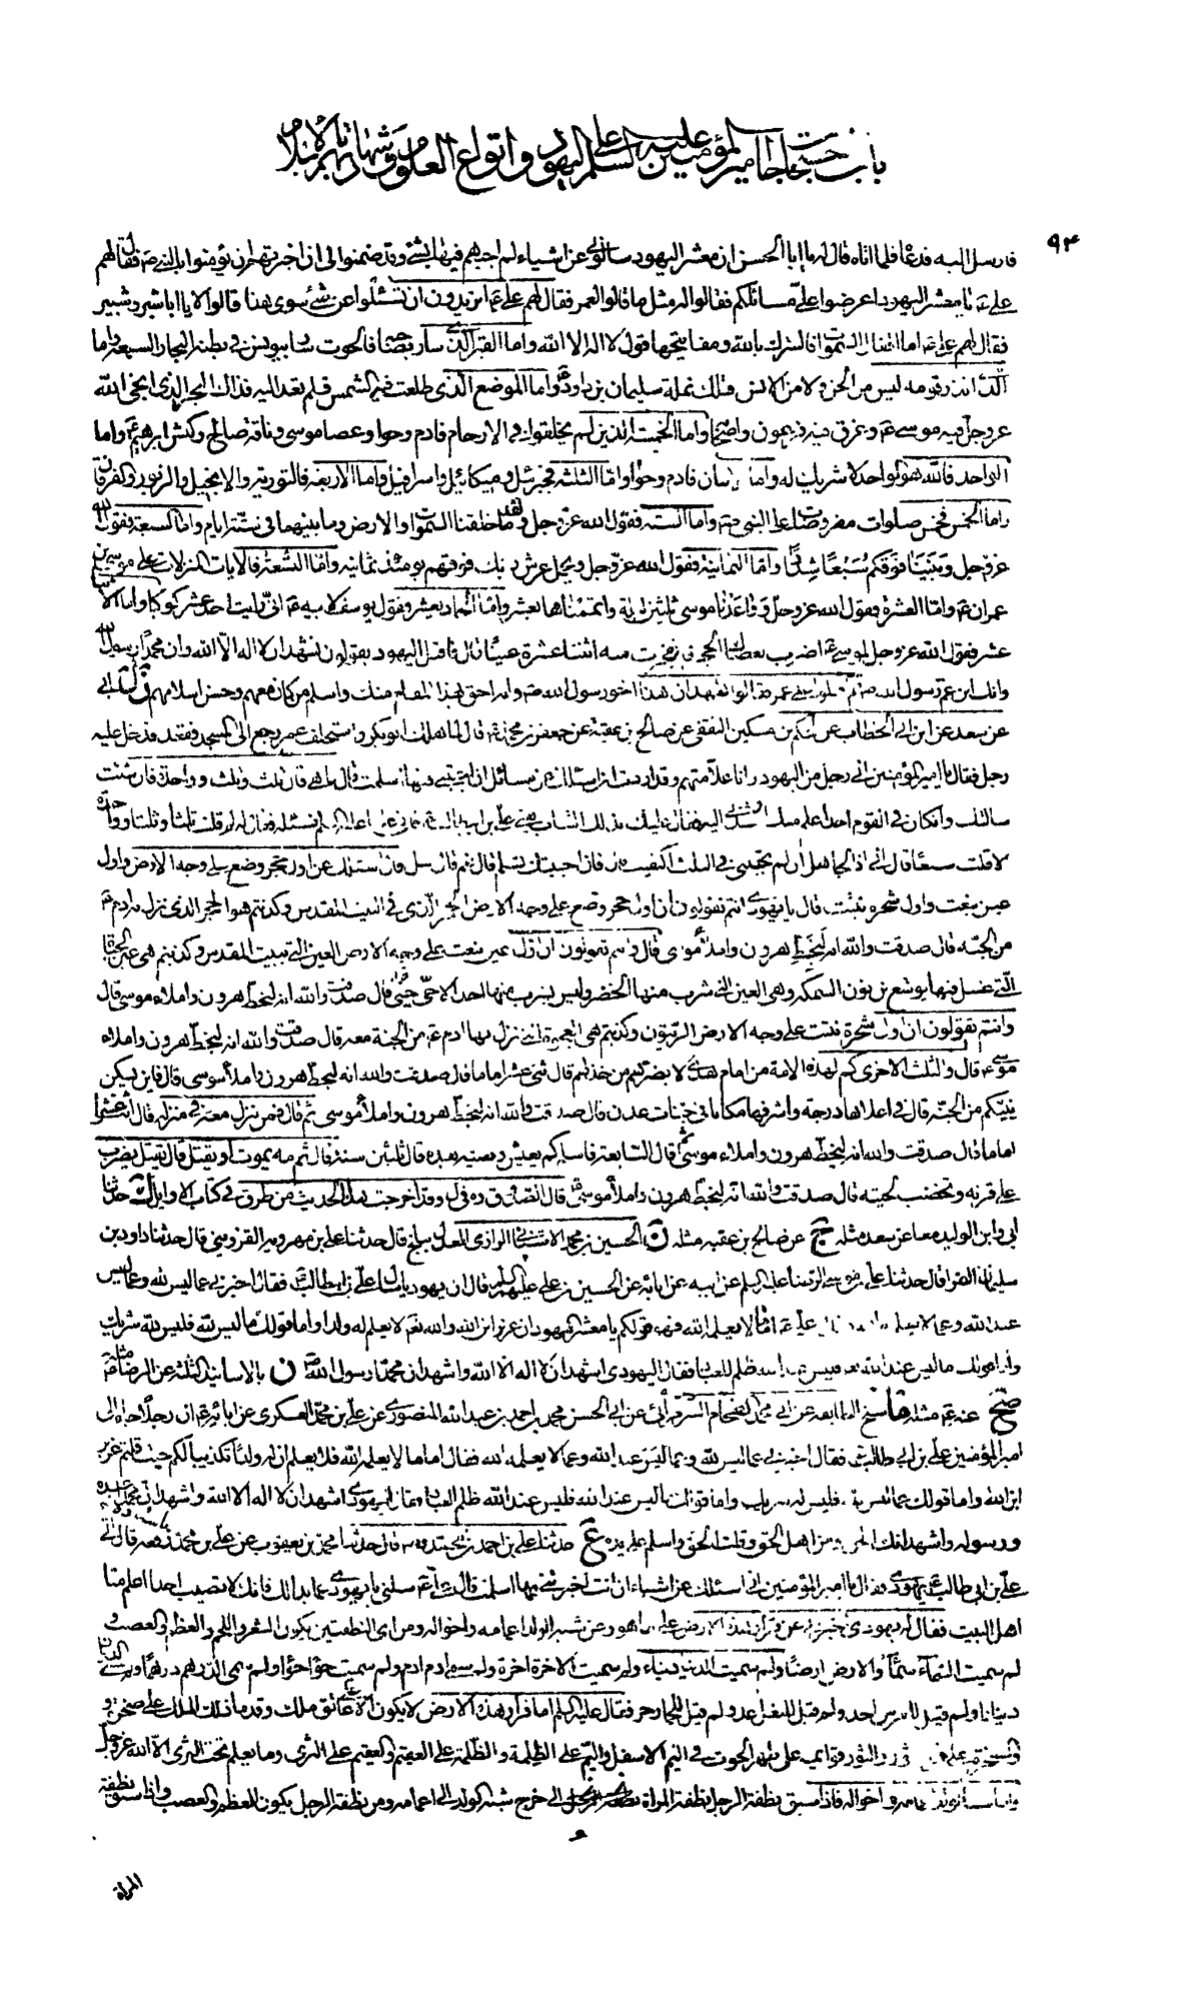 باب احتجاجات أمير المؤمنين عليه السلم على اليهود وانواع العلوم
٩٤
فارسل اليه فدعاه فلما اتاه قال له يا ابا الحسن ان معشر اليهود سالوني عن اشياء لم اجبهم فيها بشئ وقد ضمنوا لي ان اخبرتهم ان يؤمنوا بالنبي ص فقال لهم
علي ع يا معشر اليهود اعرضوا علي مسائلكم فقالوا له مثل ما قالوا لعمر فقال لهم علي ع اتريدون ان تسئلوا عن شئ سوى هذا قالوا لا يا ابا شبر وشبير
فقال لهم علي ع اما اقفال السموات فالشرك بالله ومفاتيحها قول لا اله الا الله واما القبر الذي سار بصاحبه فالحوت سار بيونس في بطنه البحار السبعة واما
الذي انذر قومه ليس من الجن ولا من الانس فتلك نملة سليمان بن داود واما الموضع الذي طلعت فيه الشمس فلم تعد اليه فذاك البحر الذي انجى الله
عز وجل فيه موسى ع وغرق فيه فرعون واصحابه واما الخمسة الذين لم يخلقوا في الارحام فادم وحوا وعصا موسى وناقة صالح وكبش ابرهيم ع واما
الواحد فالله هو الواحد لا شريك له واما فادم وحوا واما الثلثة فجبرئيل وميكائيل واسرافيل واما الاربعة فالتورية والانجيل والزبور والفرقان
واما الخمس فخمس صلوات مفروضات على النبي ص واما الستة فقول الله عز وجل ولقد خلقنا السموات والارض وما بينهما في ستة ايام واما السبعة فقول الله
عز وجل وبنينا فوقكم سبعا شدادا واما الثمانية فقول الله عز وجل ويحمل عرش ربك فوقهم يومئذ ثمانية واما التسعة فالايات المنزلات على موسى بن
عمران ع واما العشرة فقول الله عز وجل وواعدنا موسى ثلثين ليلة واتممناها بعشر واما الحادي عشر فقول يوسف لابيه ع اني رايت احد عشر كوكبا واما الاثنا
عشر فقول الله عز وجل لموسى ع اضرب بعصاك الحجر فانفجرت منه اثنتا عشرة عينا قال فاقبل اليهود يقولون نشهد ان لا اله الا الله وان محمدا رسول الله
وانك ابن عم رسول الله ص ثم اقبلوا على عمر فقالوا نشهد ان هذا اخو رسول الله ص وانه احق بهذا المقام منك واسلم من كان معهم وحسن اسلامهم
عن سعد عن ابن ابي الخطاب عن الحكم بن مسكين الثقفي عن صالح بن عقبة عن جعفر بن محمد ع قال لما هلك ابو بكر واستخلف عمر رجع الى المسجد فقعد فدخل عليه
رجل فقال يا امير المؤمنين اني رجل من اليهود وانا علامتهم وقد اردت ان اسئلك عن مسائل ان اجبتني فيها اسلمت قال ما هي قال ثلث وثلث وواحدة فان شئت
سالتك وان كان في القوم احد اعلم منك ارشدني اليه قال عليك بذلك الشاب يعني علي بن ابي طالب ع فاتى عليا ع فسئله فقال له لم قلت ثلثا وثلثا وواحدة
الا قلت سبعا قال اني اذا لجاهل ان لم تجبني في الثلث اكتفيت قال فان اجبتك تسلم قال نعم قال سل قال اسئلك عن اول حجر وضع على وجه الارض واول
عين نبعت واول شجرة نبتت قال يا يهودي انتم تقولون ان اول حجر وضع على وجه الارض الحجر الذي في البيت المقدس وكذبتم هو الحجر الذي نزل به ادم ع
من الجنة قال صدقت والله انه لبخط هرون واملاء موسى قال وانتم تقولون ان اول عين نبعت على وجه الارض العين التي ببيت المقدس وكذبتم هي عين الحيوة
التي غسل فيها يوشع بن نون السمكة وهي العين التي شرب منها الخضر وليس يشرب منها احد الا حي قال صدقت والله انه لبخط هرون واملاء موسى قال
وانتم تقولون ان اول شجرة نبتت على وجه الارض الزيتون وكذبتم هي العجوة التي نزل بها ادم ع من الجنة معه قال صدقت والله انه لبخط هرون واملاء
موسى ع قال والثلث الاخرى كم لهذه الامة من امام هدى لا يضرهم من خذلهم قال اثنى عشر اماما قال صدقت والله انه لبخط هرون واملاء موسى قال فاين يسكن
نبيكم من الجنة قال في اعلاها درجة واشرفها مكانا في جنات عدن قال صدقت والله انه لبخط هرون واملاء موسى ثم قال فمن ينزل معه في منزله قال اثنا عشر
اماما قال صدقت والله انه لبخط هرون واملاء موسى قال السابعة فاسئلك كم يعيش وصيه بعده قال ثلثين سنة قال ثم مه يموت او يقتل قال يقتل يضرب
على قرنه وتخضب لحيته قال صدقت والله انه لبخط هرون واملاء موسى قال الصدوق ره وقد اخرجت هذا الحديث من طرق في كتاب الاوايل حدثنا
ابي وابن الوليد معا عن سعد مثله ج عن صالح بن عقبة مثله ن الحسين بن محمد الاشناني الرازي العدل ببلخ قال حدثنا علي بن مهرويه القزويني قال حدثنا داود بن
سليمان الفرا قال حدثنا علي بن موسى الرضا عليه السلم عن ابيه عن ابائه عن الحسين بن علي عليهم السلم قال ان يهوديا سال علي بن ابي طالب ع فقال اخبرني عما ليس لله وعما ليس
عند الله وعما لا يعلمه الله فقال علي ع اما ما لا يعلمه الله فهو قولكم يا معشر اليهود ان عزيرا ابن الله والله تعالى لا يعلم له ولدا واما قولك ما ليس لله فليس لله شريك
واما قولك ما ليس عند الله فليس عند الله ظلم للعباد فقال اليهودي اشهد ان لا اله الا الله واشهد ان محمدا رسول الله ن بالاسانيد الثلثة عن الرضا ع مثله
صح عنه ع مثله ما شيخ الطائفة عن ابي محمد الفحام السرمرائي عن ابي الحسن محمد بن احمد بن عبد الله المنصوري عن علي بن محمد العسكري عن ابائه ع ان رجلا جاء الى
امير المؤمنين علي بن ابي طالب ع فقال اخبرني عما ليس لله وعما ليس عند الله وعما لا يعلمه الله فقال اما ما لا يعلمه الله فلا يعلم ان له ولدا تكذيبا لكم حيث قلتم عزير
ابن الله واما قولك عما ليس لله فليس له شريك واما قولك ما ليس عند الله فليس عند الله ظلم العباد فقال اليهودي اشهد ان لا اله الا الله واشهد ان محمدا عبده
ورسوله واشهد انك الحق ومن اهل الحق وقلت الحق واسلم على يده ع حدثنا علي بن احمد بن محمد قال حدثنا محمد بن يعقوب عن علي بن محمد رفعه قال اتى
علي بن ابي طالب ع يهودي فقال يا امير المؤمنين اني اسئلك عن اشياء ان انت اخبرتني بها اسلمت قال علي ع سلني يا يهودي عما بدا لك فانك لا تصيب احدا اعلم منا
اهل البيت فقال له اليهودي اخبرني عن قرار هذه الارض على ما هو وعن شبه الولد اعمامه واخواله ومن اي النطفتين يكون الشعر واللحم والعظم والعصب و
لم سميت السماء سماء والارض ارضا ولم سميت الدنيا دنيا ولم سميت الاخرة اخرة ولم سمي ادم ادم ولم سميت حوا حوا ولم سمي الدرهم درهما ولم سمي الدينار
دينارا ولم قيل للفرس اجد ولم قيل للبغل عد ولم قيل للحمار حر فقال عليه السلم اما قرار هذه الارض لا يكون الا على عاتق ملك وقدما ذلك الملك على صخرة و
الصخرة على قرن ثور والثور قوائمه على ظهر الحوت في اليم الاسفل واليم على الظلمة والظلمة على العقيم والعقيم على الثرى وما يعلم تحت الثرى الا الله عز وجل
واما شبه الولد اعمامه واخواله فاذا سبق نطفة الرجل نطفة المراة الى الرحم خرج شبه الولد الى اعمامه ومن نطفة الرجل يكون العظم والعصب واذا سبق نطفة
المراة